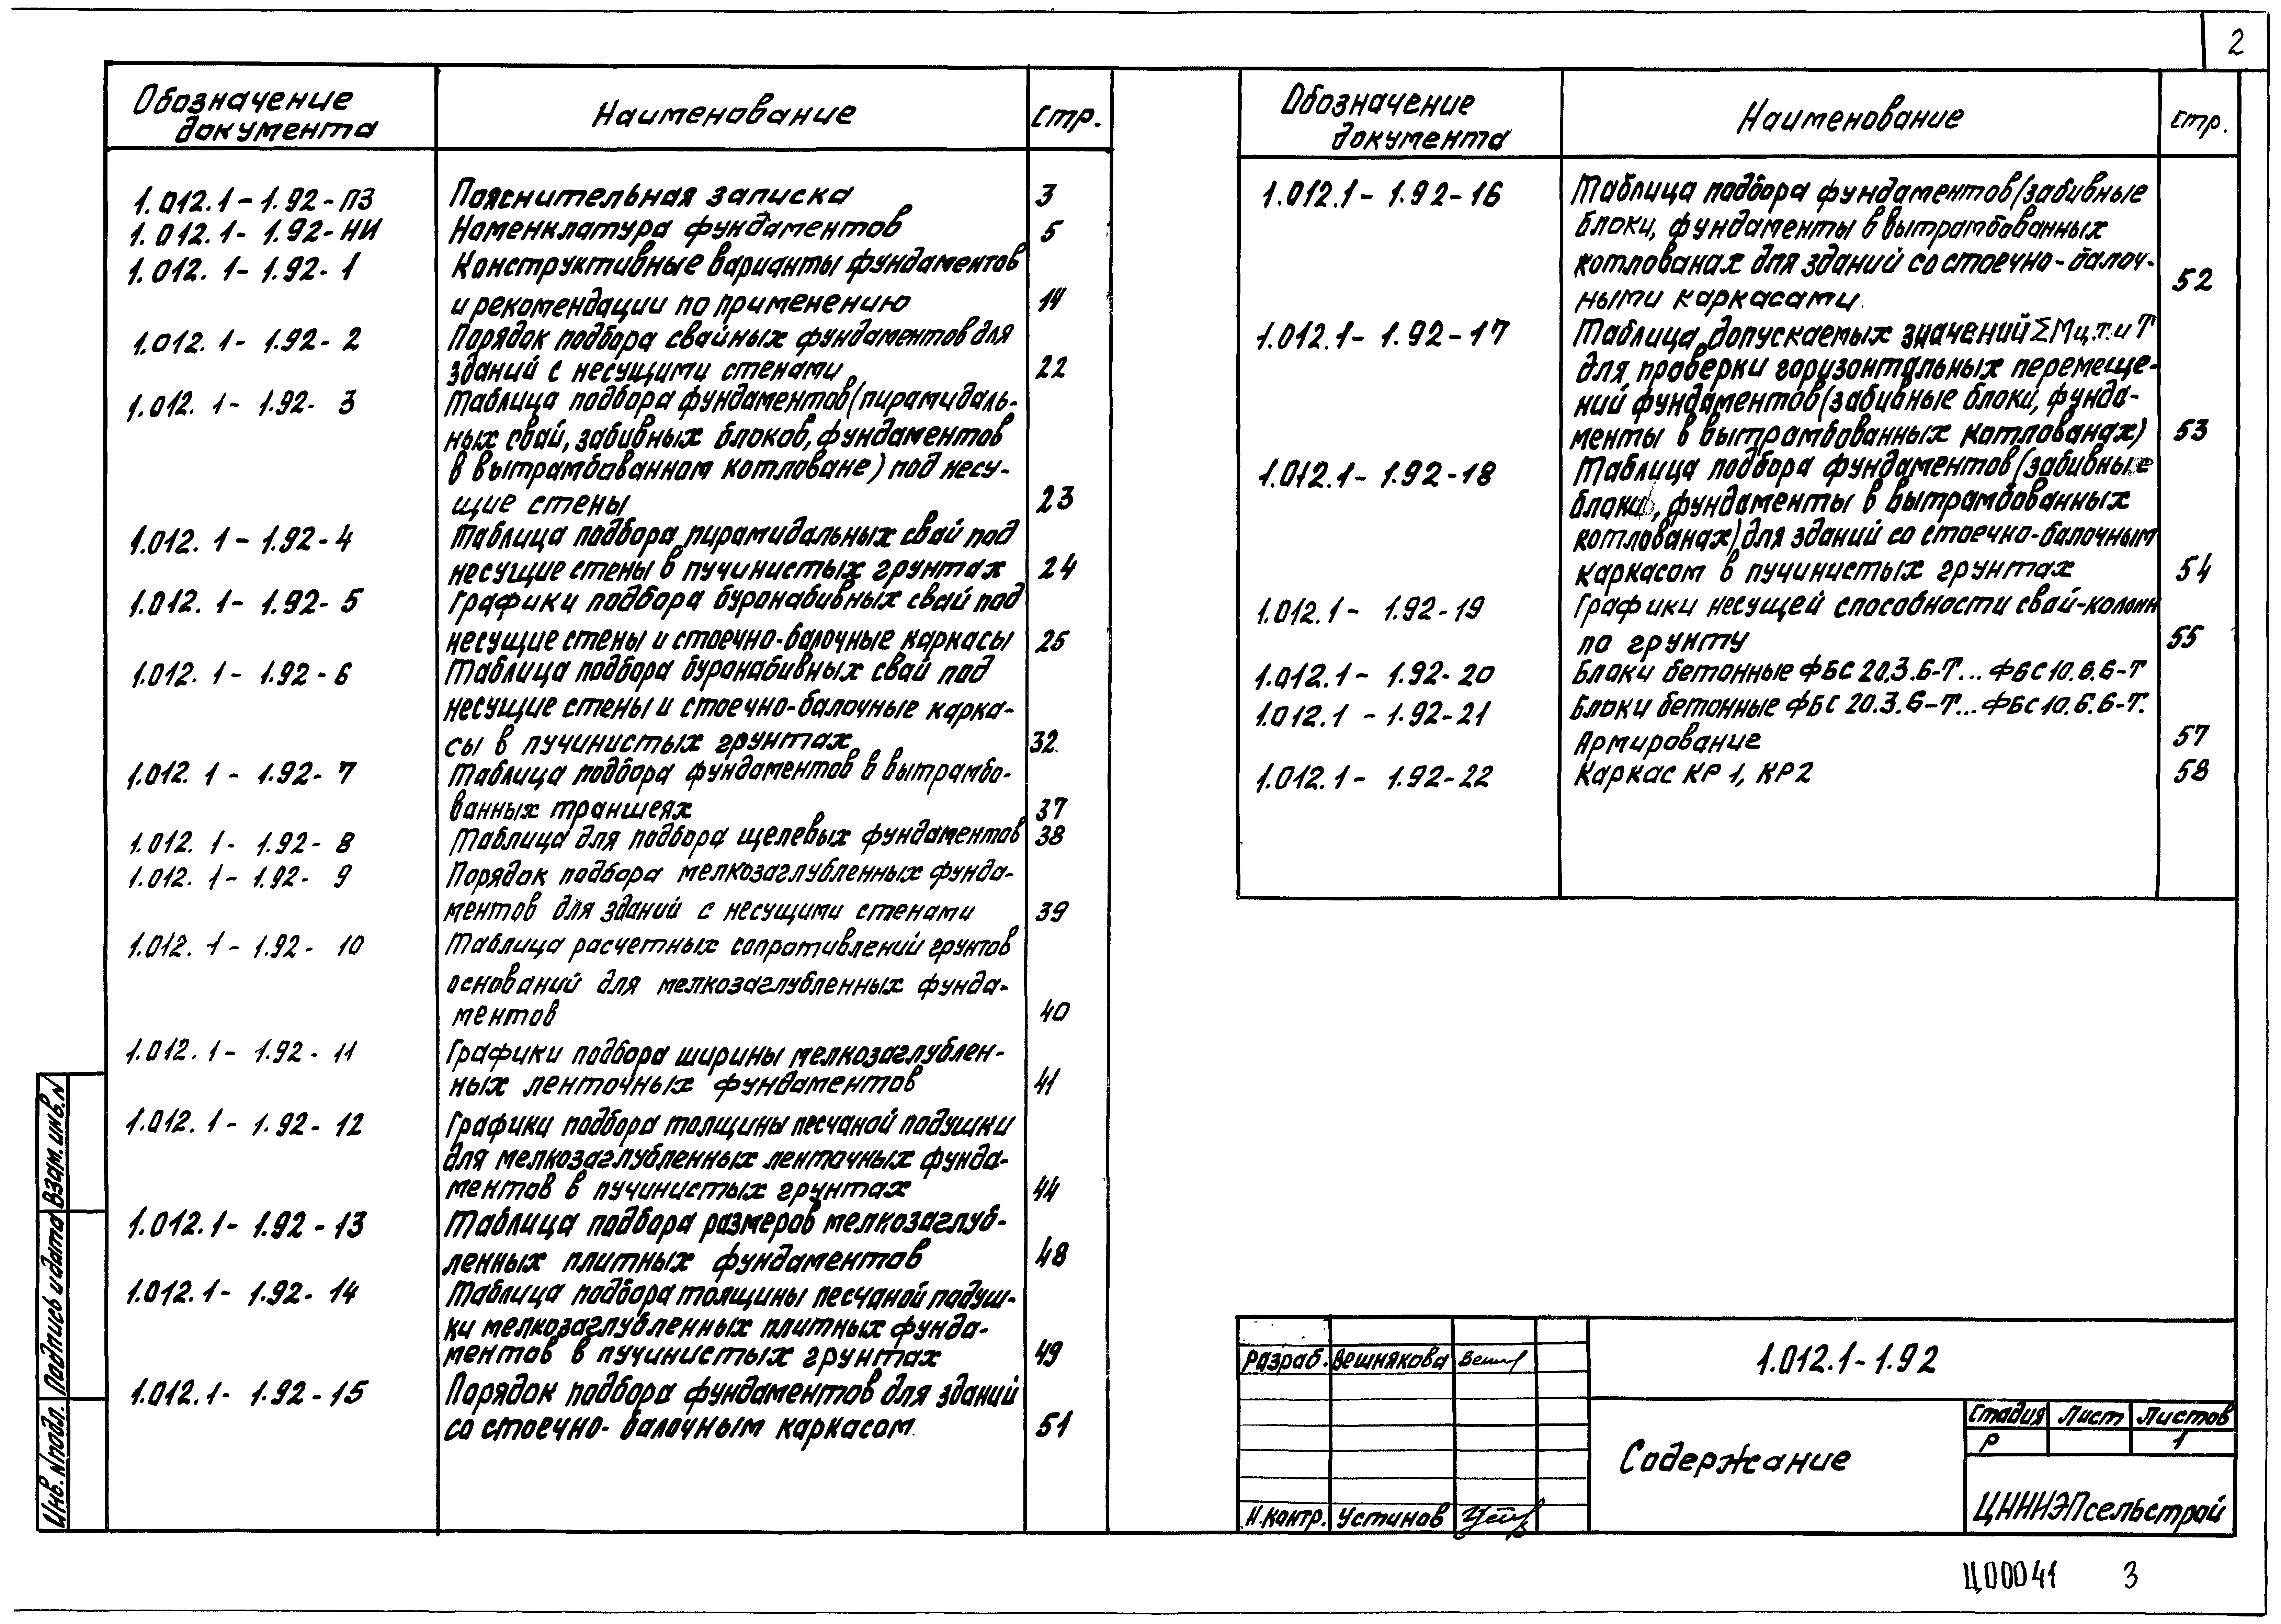 2
Обозначение документа Наименование Стр.
1.012.1-1.92-ПЗ Пояснительная записка 3
1.012.1-1.92-НИ Номенклатура фундаментов 5
1.012.1-1.92-1 Конструктивные варианты фундаментов
и рекомендации по применению 14
1.012.1-1.92-2 Порядок подбора свайных фундаментов для
зданий с несущими стенами 22
1.012.1-1.92-3 Таблица подбора фундаментов (пирамидаль-
ных свай, забивных блоков, фундаментов
в вытрамбованном котловане) под несу-
щие стены 23
1.012.1-1.92-4 Таблица подбора пирамидальных свай под
несущие стены в пучинистых грунтах 24
1.012.1-1.92-5 Графики подбора буронабивных свай под
несущие стены и стоечно-балочные каркасы 25
1.012.1-1.92-6 Таблица подбора буронабивных свай под
несущие стены и стоечно-балочные карка-
сы в пучинистых грунтах 32
1.012.1-1.92-7 Таблица подбора фундаментов в вытрамбо-
ванных траншеях 37
1.012.1-1.92-8 Таблица для подбора щелевых фундаментов 38
1.012.1-1.92-9 Порядок подбора мелкозаглубленных фунда-
ментов для зданий с несущими стенами 39
1.012.1-1.92-10 Таблица расчетных сопротивлений грунтов
оснований для мелкозаглубленных фунда-
ментов 40
1.012.1-1.92-11 Графики подбора ширины мелкозаглублен-
ных ленточных фундаментов 41
1.012.1-1.92-12 Графики подбора толщины песчаной подушки
для мелкозаглубленных ленточных фунда-
ментов в пучинистых грунтах 44
1.012.1-1.92-13 Таблица подбора размеров мелкозаглуб-
ленных плитных фундаментов 48
1.012.1-1.92-14 Таблица подбора толщины песчаной подуш-
ки мелкозаглубленных плитных фунда-
ментов в пучинистых грунтах 49
1.012.1-1.92-15 Порядок подбора фундаментов для зданий
со стоечно-балочным каркасом. 51
Обозначение документа Наименование стр.
1.012.1-1.92-16 Таблица подбора фундаментов (забивные
блоки, фундаменты в вытрамбованных
котлованах для зданий со стоечно-балоч-
ными каркасами. 52
1.012.1-1.92-17 Таблица допускаемых значений ΣМц.т. и Т
для проверки горизонтальных перемеще-
ний фундаментов (забивные блоки, фунда-
менты в вытрамбованных котлованах) 53
1.012.1-1.92-18 Таблица подбора фундаментов (забивные
блоки, фундаменты в вытрамбованных
котлованах) для зданий со стоечно-балочным
каркасом в пучинистых грунтах 54
1.012.1-1.92-19 Графики несущей способности свай-колонн
по грунту 55
1.012.1-1.92-20 Блоки бетонные ФБС 20.3.6-Т... ФБС 10.6.6-Т
1.012.1-1.92-21 Блоки бетонные ФБС 20.3.6-Т... ФБС 10.6.6-Т.
Армирование 57
1.012.1-1.92-22 Каркас КР1, КР2 58
Взам. инв. N
Подпись и дата
Инв. N подл.
Разраб. Вешнякова Вешн
Н.контр. Устинов Устн
1.012.1-1.92
Содержание
Стадия Лист Листов
Р 1
ЦНИИЭПсельстрой
Ц00041 3